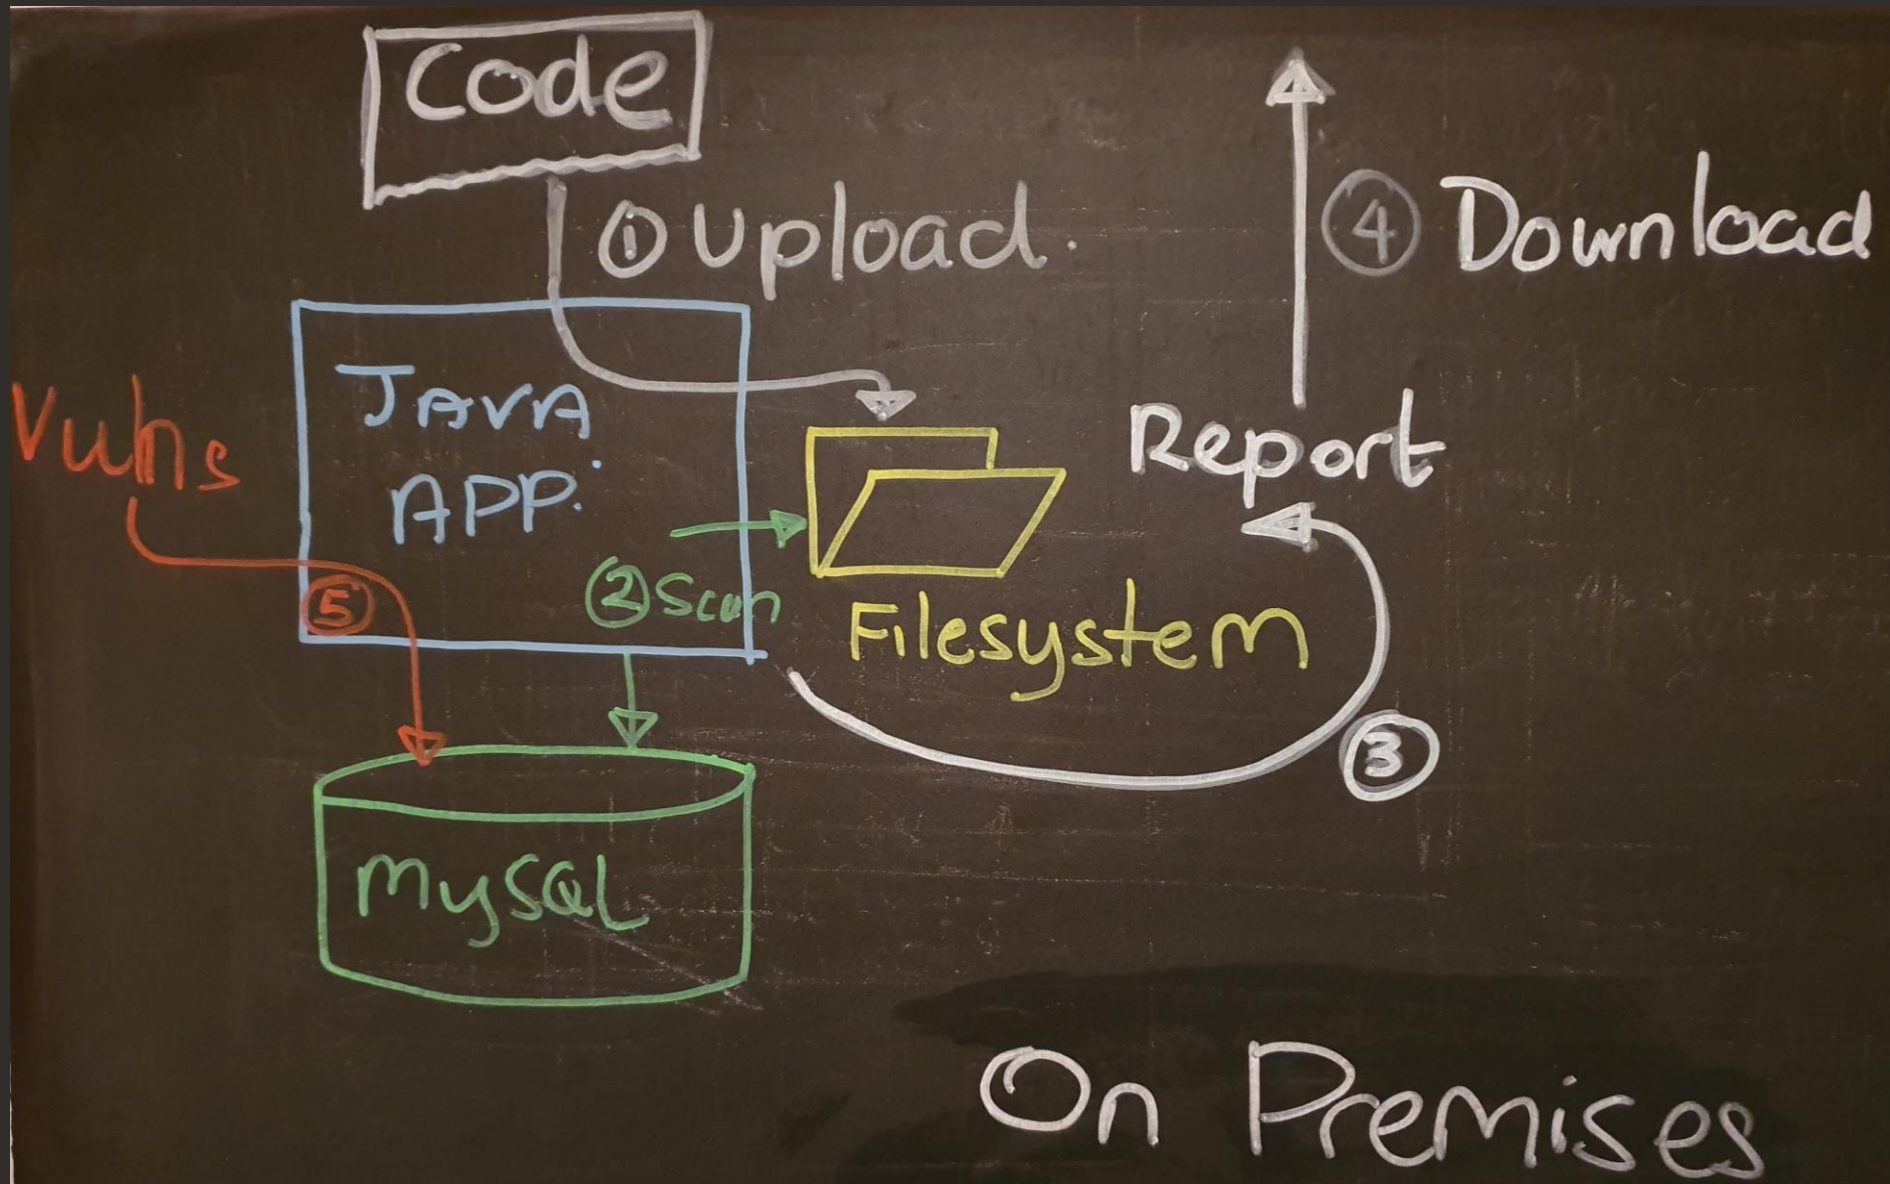 Code
① Upload.
④ Download
JAVA
APP.
Vulns
Report
② Scan
⑤
Filesystem
③
MySQL
On Premises